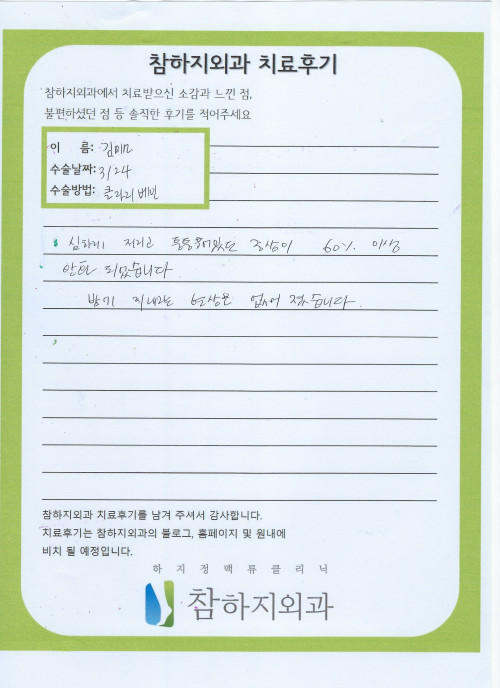 참하지외과 치료후기
참하지외과에서 치료받으신 소감과 느낀 점,
불편하셨던 점 등 솔직한 후기를 적어주세요
이 름: 김미
수술날짜: 3/24
수술방법: 클라리베인
심하게 저리고 퉁퉁 부어있던 증상이 60%. 이상
완화 되었습니다
밤에 쥐나는 현상은 없어 졌습니다.
참하지외과 치료후기를 남겨 주셔서 감사합니다.
치료후기는 참하지외과의 블로그, 홈페이지 및 원내에
비치 될 예정입니다.
하지정맥류클리닉
참하지외과